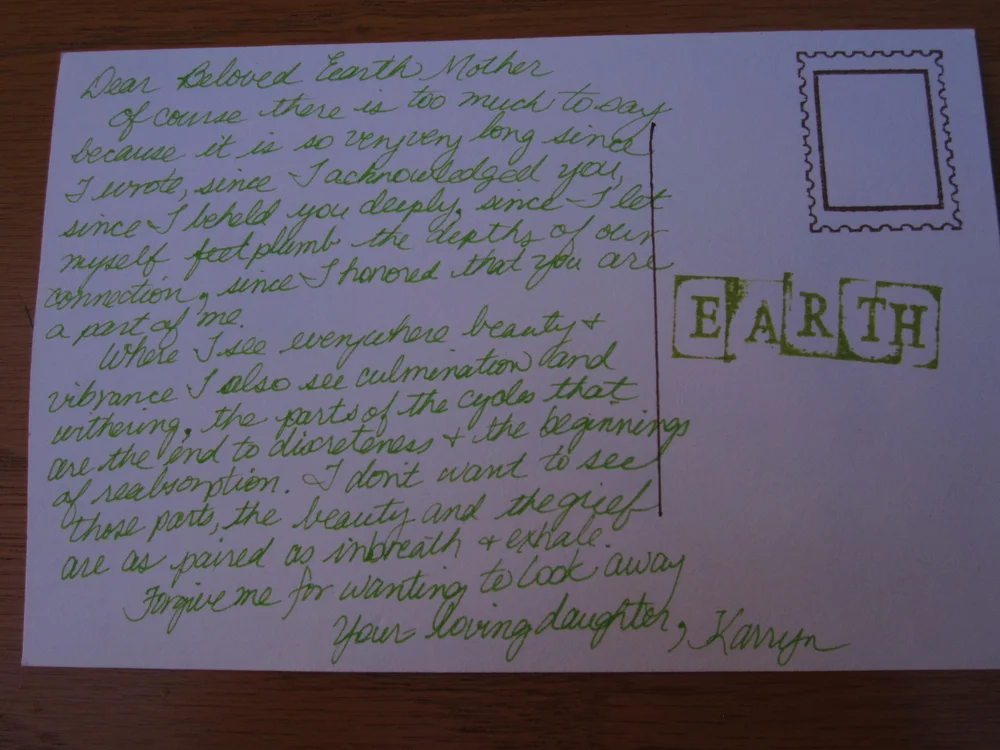 Dear Beloved Earth Mother
of course there is too much to say
because it is so very very long since
I wrote, since I acknowledged you,
since I beheld you deeply, since I let
myself plumb the depths of our
connection, since I honored that you are
a part of me.
Where I see everywhere beauty +
vibrance I also see culmination and
withering, the parts of the cycles that
are the end to discreteness + the beginnings
of reabsorption. I don't want to see
those parts, the beauty and the grief
are as paired as inbreath + exhale.
Forgive me for wanting to look away
Your loving daughter, Karryn
EARTH